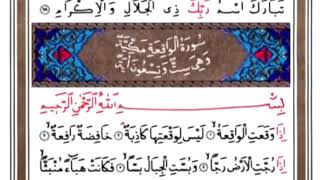 تَبَارَكَ اسْمُ رَبِّكَ ذِي الْجَلَالِ وَالْإِكْرَامِ ﴿٧٨﴾
سُورَةُ الْوَاقِعَةِ مَكِّيَّةٌ
وَهِيَ سِتٌّ وَتِسْعُونَ آيَةً
بِسْمِ اللّٰهِ الرَّحْمٰنِ الرَّحِيمِ
اِذَا وَقَعَتِ الْوَاقِعَةُ ﴿١﴾ لَيْسَ لِوَقْعَتِهَا كَاذِبَةٌ ﴿٢﴾ خَافِضَةٌ رَافِعَةٌ ﴿٣﴾
اِذَا رُجَّتِ الْاَرْضُ رَجًّا ﴿٤﴾ وَبُسَّتِ الْجِبَالُ بَسًّا ﴿٥﴾ فَكَانَتْ هَبَاءً مُنْبَثًّا ﴿٦﴾